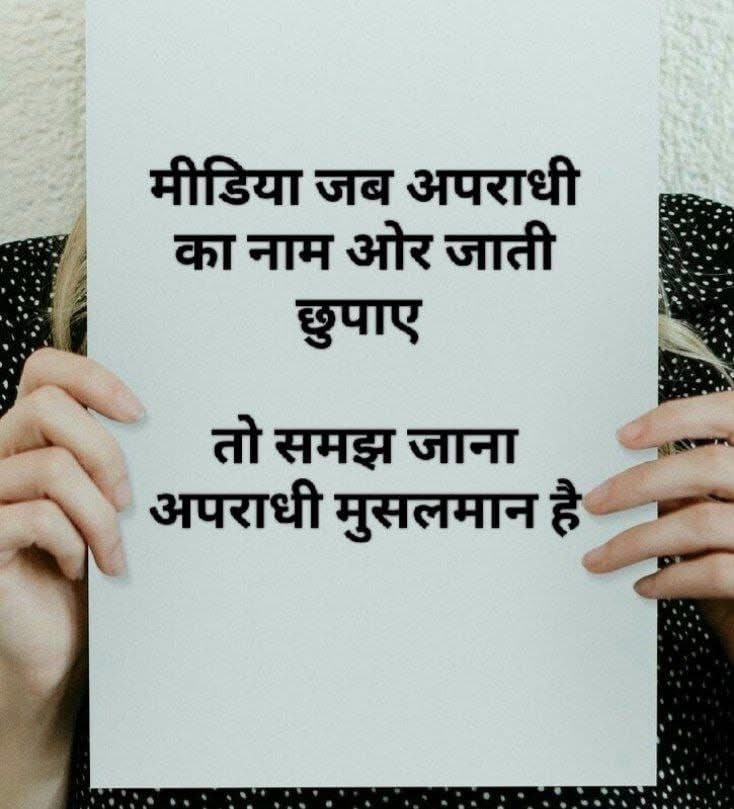 मीडिया जब अपराधी
का नाम ओर जाती
छुपाए
तो समझ जाना
अपराधी मुसलमान है